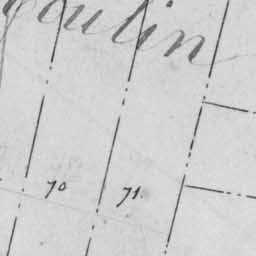 oulin
70 71